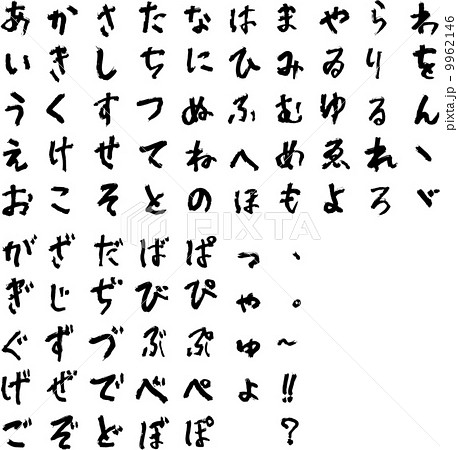 あかさたなはまやらわ
いきしちにひみゐりを
うくすつぬふむゆるん
えけせてねへめゑれヽ
おこそとのほもよろゞ
がざだばぱっ、
ぎじぢびぴゃ。
ぐずづぶぷゅ~
げぜでべぺょ!!
ござ��どぼぽ?
PIXTA
pixta.jp - 9962146